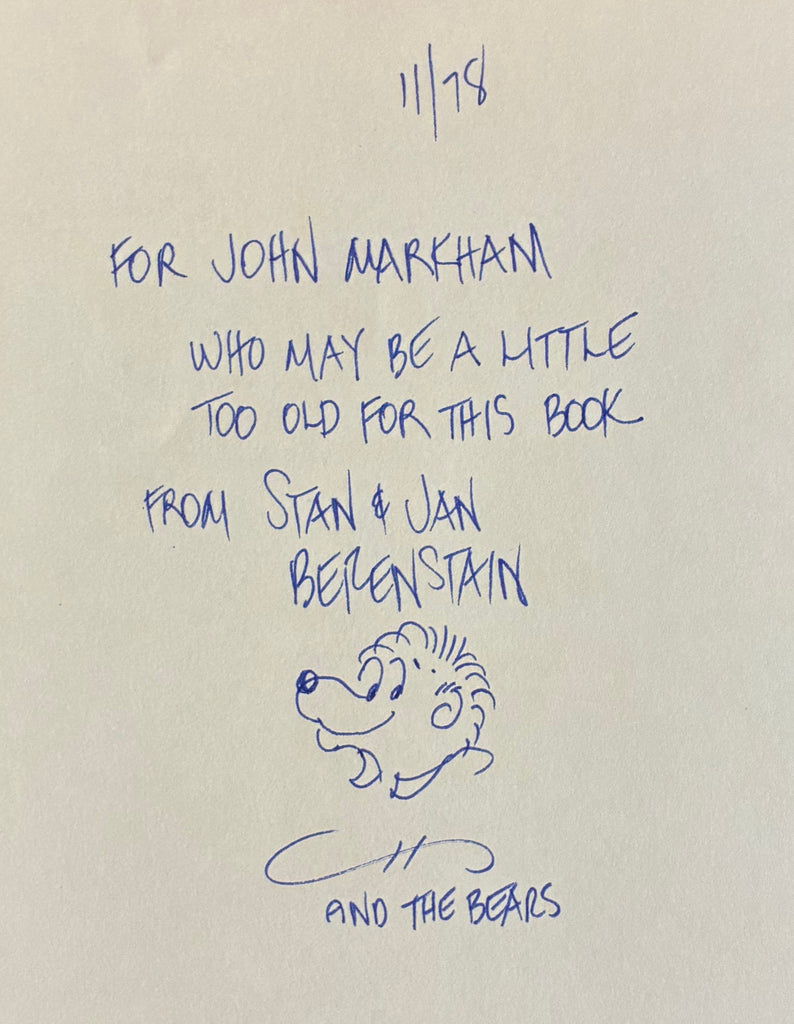 11/78
FOR JOHN MARKHAM
WHO MAY BE A LITTLE
TOO OLD FOR THIS BOOK
FROM STAN & JAN
BERENSTAIN
AND THE BEARS